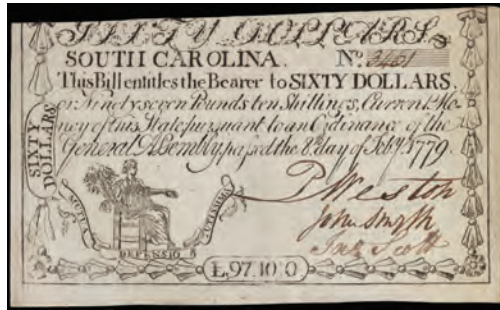 SIXTY DOLLARS
SOUTH CAROLINA. No. 3461
This Bill entitles the Bearer to SIXTY DOLLARS,
or Ninety seven Pounds ten Shillings, Current Mo-
ney of this State pursuant to an Ordinance of the
General Assembly, passed the 8th day of Feby. 1779.
SIXTY DOLLARS
P Weston
John Smyth
Scott
MUTUA DEFENSIO
£.97.10.0